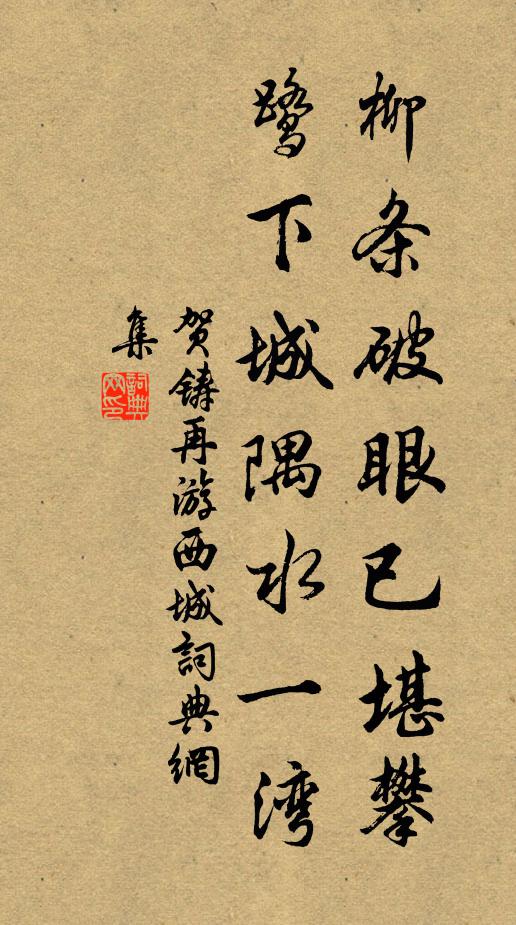 柳条破眼已堪攀
鹭下城隅水一湾
贺铸再游西城詞典網
集
詞典
网印